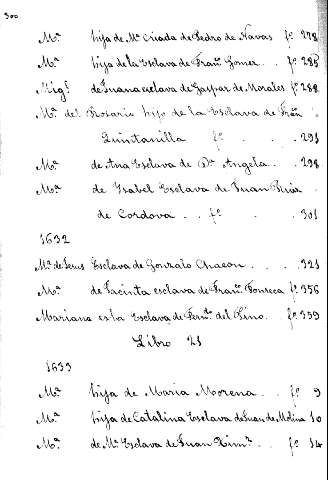 300
M.ª hija de M.ª Criada de Pedro de Navas fº 278
M.ª hija de la Esclava de Fran.co Gomez . . fº 285
Mig.l de Juana esclava de Gaspar de Morales fº 288
M.ª del Rosario hijo de la Esclava de Fran.co
Quintanilla fº . . . 291
M.ª de Ana Esclava de D.ª Angela . . . 298
M.ª de Ysabel Esclava de Juan Ruiz
de Cordova . . fº . . . 301
1632
M.ª de Jesus Esclava de Gonzalo Chacon . . . . 321
M.ª de Jacinta esclava de Fran.co Fonseca fº 356
Mariana esta Esclava de Fern.do del Pino. fº 359
Libro 21
1633
M.ª hija de Maria Morena . . . fº 9
M.ª hija de Catalina Esclava de Juan de Molina 10
M.ª de M.ª Esclava de Juan Xim.z . . fº 14